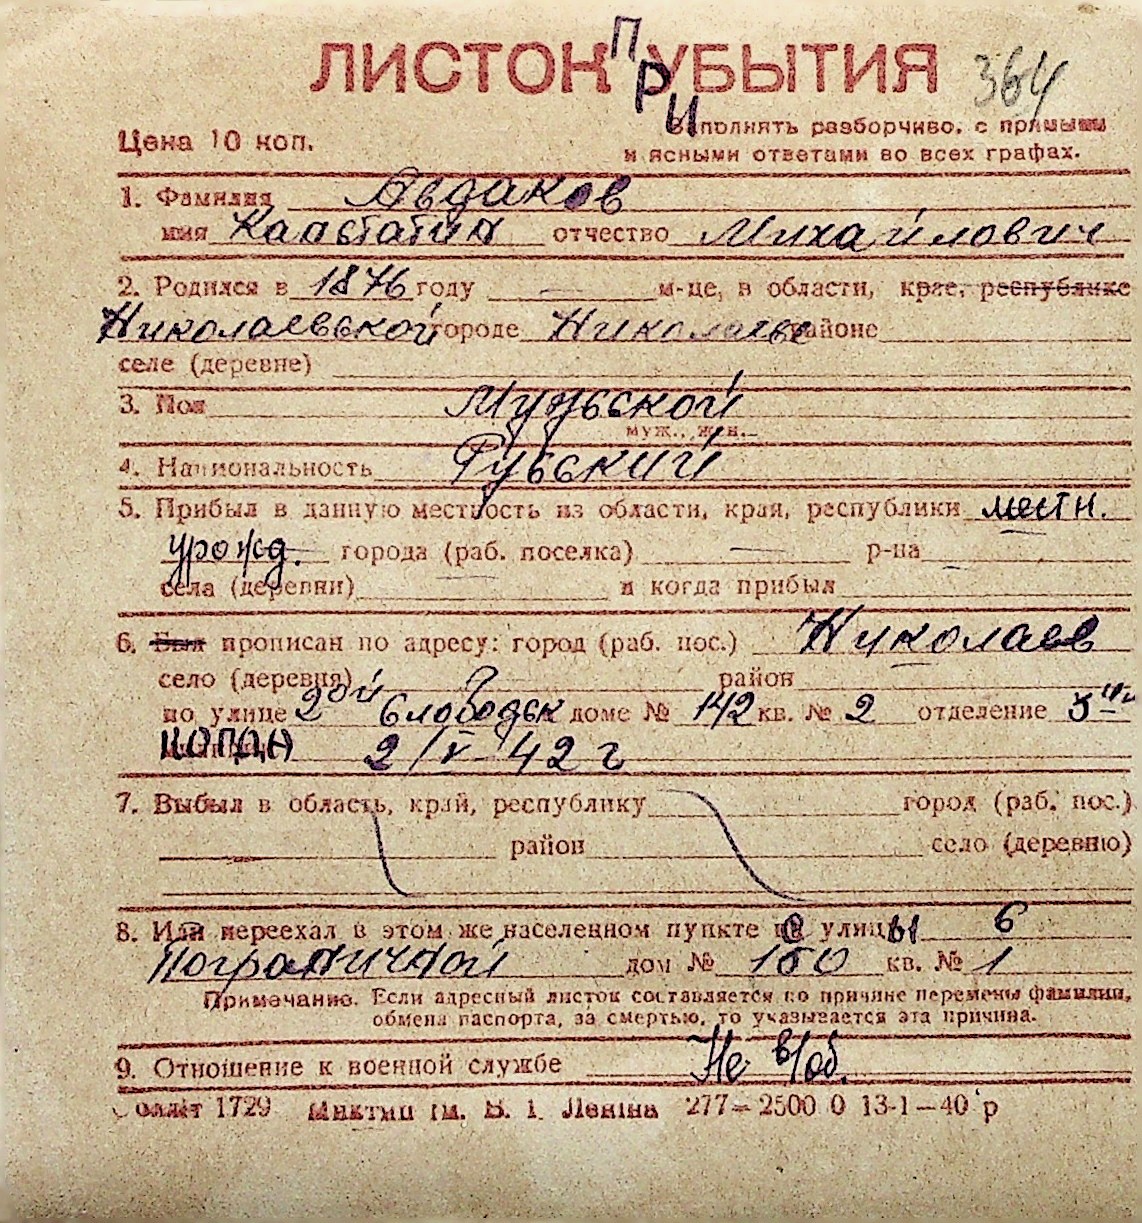 ЛИСТОК ПРИ УБЫТИЯ 364
Цена 10 коп.
Заполнять разборчиво, с прямыми
и ясными ответами во всех графах.
1. Фамилия Авдаков
имя Капстатин отчество Михайлович
2. Родился в 1876 году — м-це, в области, крае, республике
Николаевской городе Николаеве районе
селе (деревне)
3. Пол Мужской
муж., жен.
4. Национальность Русский
5. Прибыл в данную местность из области, края, республики местн.
урожд. города (раб. поселка) — р-на —
села (деревни) — и когда прибыл
6. Был прописан по адресу: город (раб. пос.) Николаев
село (деревня) район
по улице 2ой Слободск доме № 142 кв. № 2 отделение 3
2/V-42 г
7. Выбыл в область, край, республику город (раб. пос.)
район село (деревню)
8. Или переехал в этом же населенном пункте с улицы 6
Пограничной дом № 160 кв. № 1
Примечание. Если адресный листок составляется по причине перемены фамилии,
обмена паспорта, за смертью, то указывается эта причина.
9. Отношение к военной службе Не в/об.
1729 ім. В. І. Леніна 277—2500 0 13-1—40 р